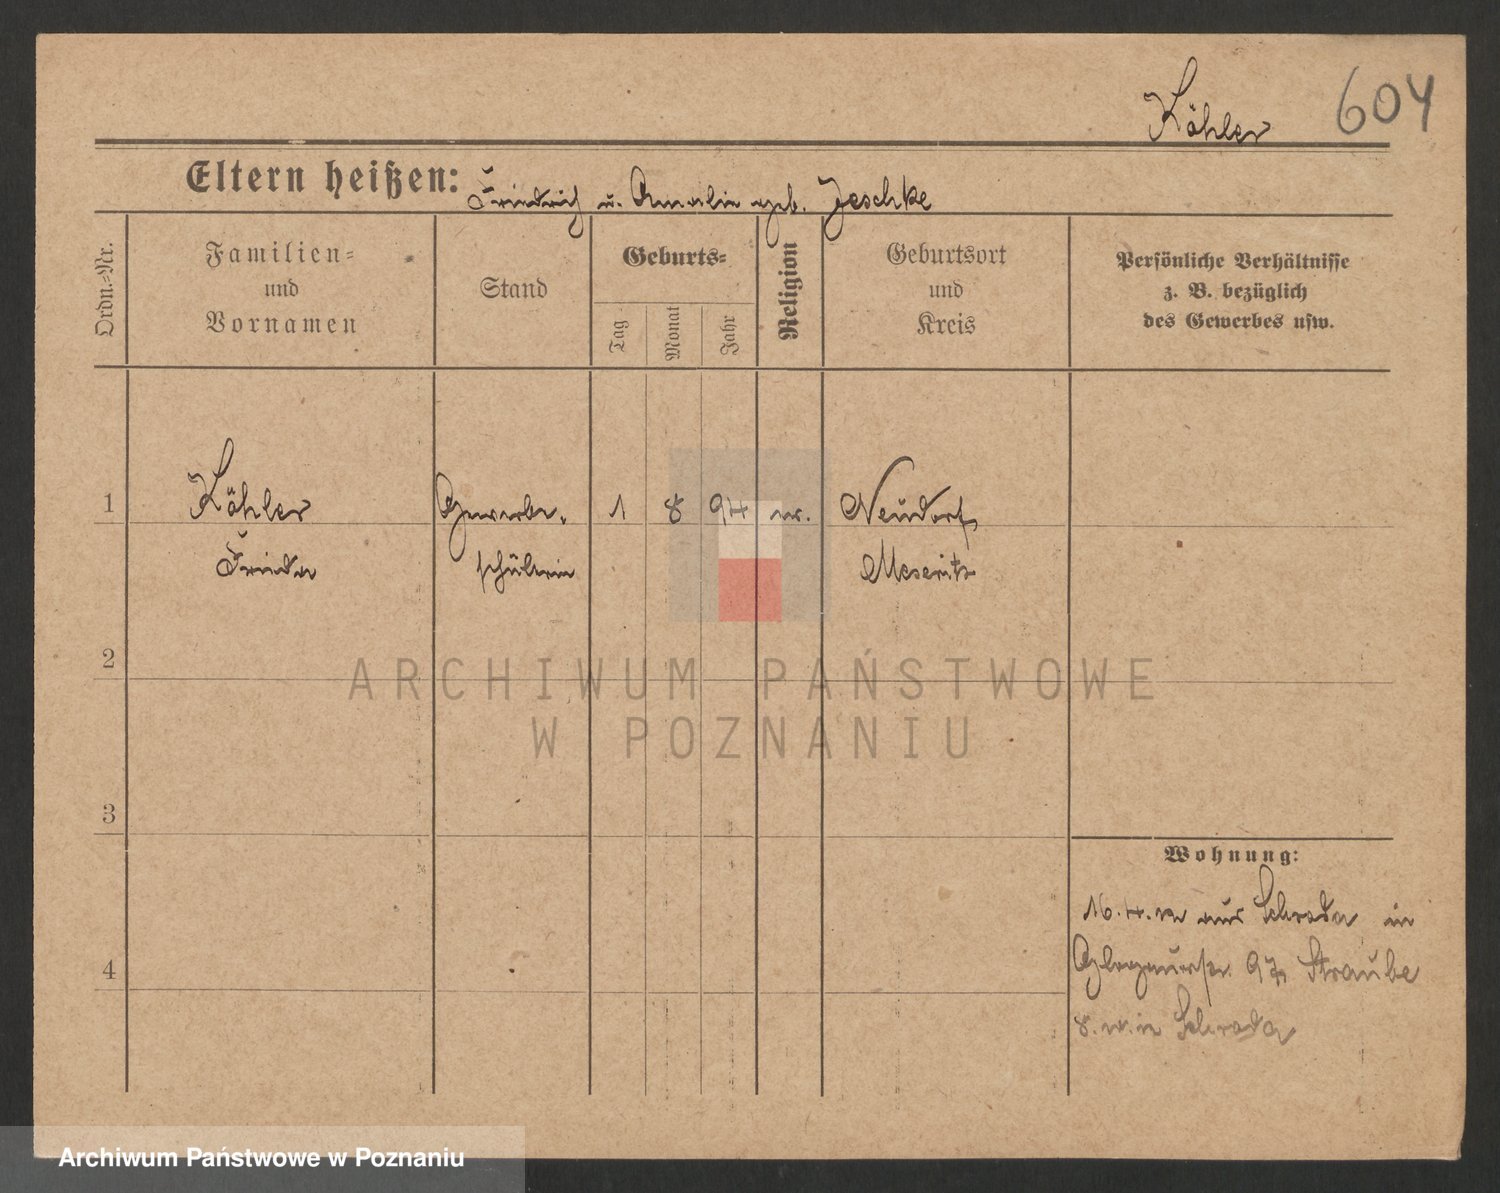 Köhler 604
Eltern heißen: Friedrich u. Amalie geb. Jeschke
Ordn.-Nr.
Familien-
und
Vornamen
Stand
Geburts-
Tag
Monat
Jahr
Religion
Geburtsort
und
Kreis
Persönliche Verhältnisse
z. B. bezüglich
des Gewerbes usw.
1 Köhler Gewerbe- 1 8 94 ev. Neudorf
Frieda schülerin Meseritz
2
ARCHIWUM PAŃSTWOWE
W POZNANIU
3
Wohnung:
16.4. aus Schroda in
4
Glogauerstr. 97, Straube
8. Schroda
Archiwum Państwowe w Poznaniu